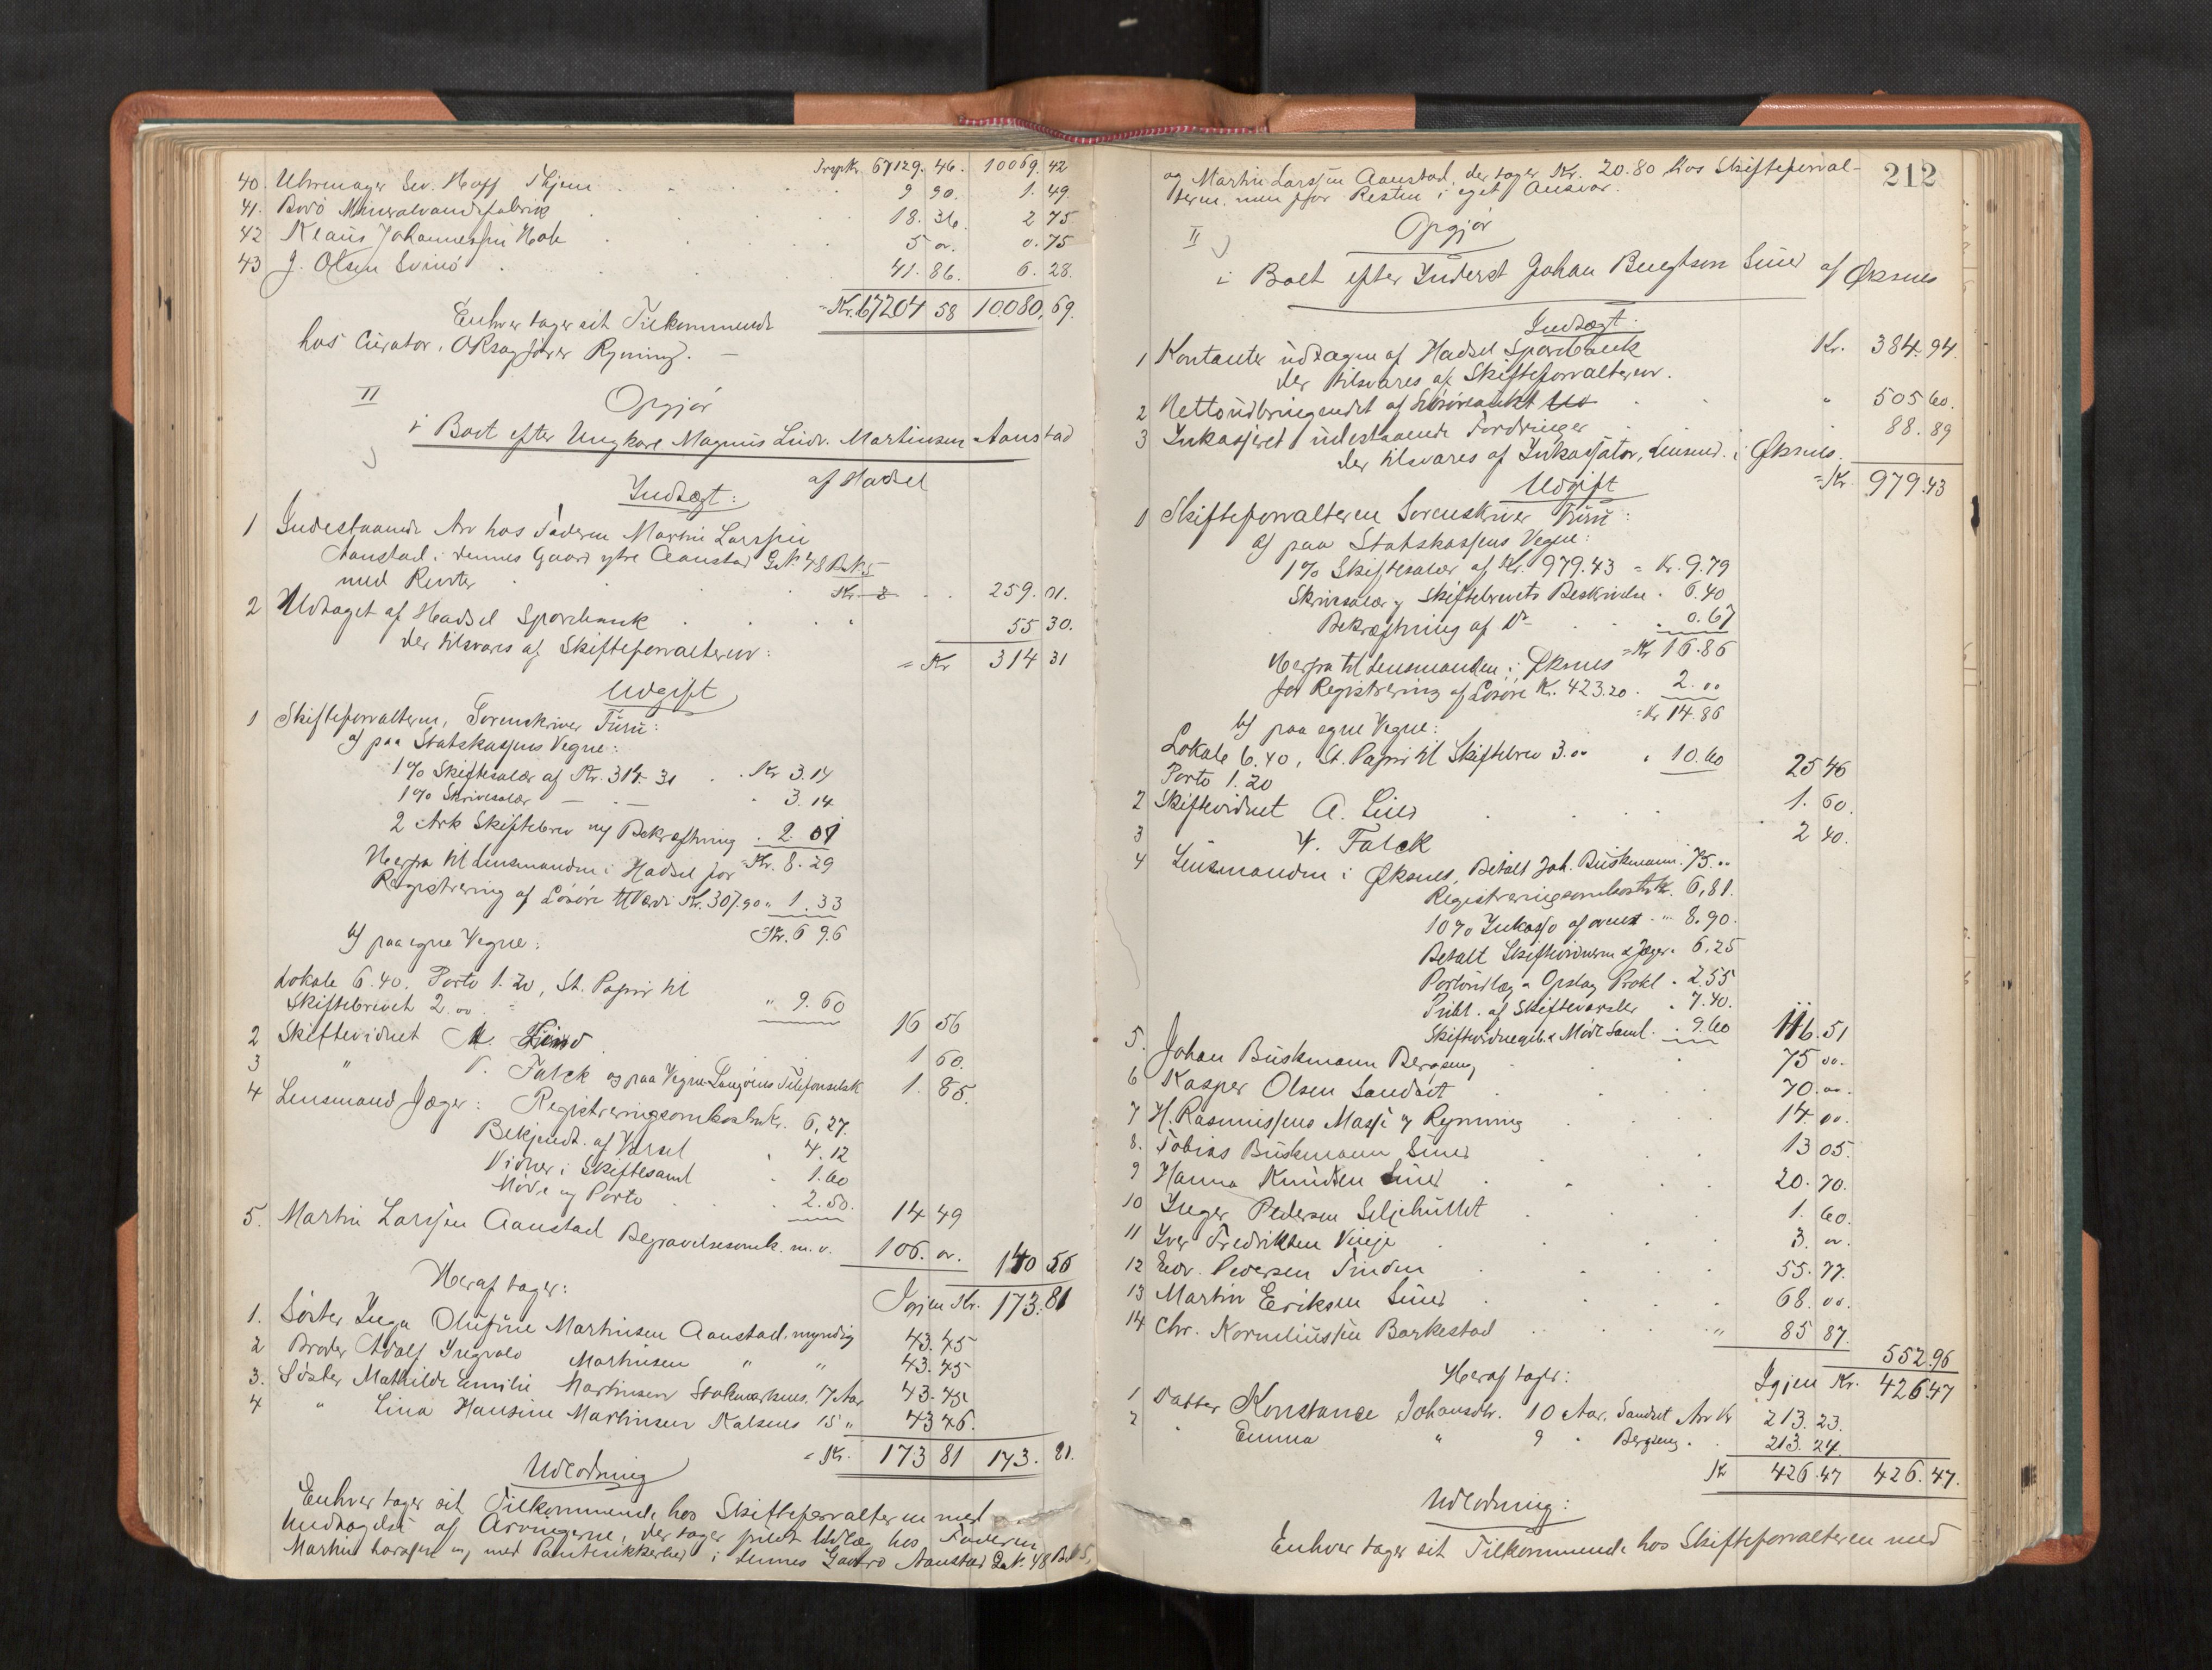 Trspt. Kr. 67129. 46. 10069. 42
40. Uhrmager Sev. Hoff Skjem . . . 9 90. 1. 49.
41. Bodö Mineralvandsfabrik . . . 18. 36. 2 75
42 Klaus Johannessen Hole . . . 5 00. 0. 75
43 J. Olsen Svinö . . . 41. 86. 6. 28.
= Kr. 67204 58 10080, 69.
Enhver tager sit Tilkommende
hos Curator, ORsagfører Rynning. —
II
Opgjör
i Boet efter Ungkarl Magnus Ludv. Martinsen Aanstad
af Hadsel
Indtægt:
1 Indestaaende Arv hos Faderen Martin Larssen
Aanstad i dennes Gaard ytre Aanstad G.N. 48 B.N. 5
med Renter . . . 259. 01.
2 Udtaget af Hadsel Sparebank . . . " 55 30.
der tilsvares af Skifteforvalteren: = Kr 314 31
Udgift
1 Skifteforvalteren, Sorenskriver Furu:
a) paa Statskassens Vegne:
1% Skiftesalær af Kr. 314. 31 . . Kr 3.14
1% Skrivesalær — — . 3. 14
2 Ark Skiftebrev og Bekræftning . 2. 01
= Kr. 8. 29
Herfra til Lensmanden i Hadsel for
Registrering af Lösöre til Værdi Kr. 307.90 " 1. 33
= Kr. 6 96
b) paa egne Vegne:
Lokale 6.40. Porto 1.20, St. Papir til
Skiftebrevet 2.00 " 9. 60
16 56
2 Skiftevidnet M. Lind . 1 60.
3 " V. Falck og paa Vegne Langöens Telefonselsk 1. 85.
4 Lensmand Jæger: Registreringsomkostn Kr. 6, 27.
Bekjendt. af Varsel . 4. 12
Vidner i Skiftesaml . 1.60
Möde og Porto . . . 2. 50.
14 49
5. Martin Larssen Aanstad Begravelsesomk. m. v. 106. 00. 140 50
Igjen Kr. 173. 81
Heraf tager:
1. Söster Inga Olufine Martinsen Aanstad, myndig 43. 45
2 Broder Adolf Ingvald Martinsen " " 43. 45
3. Söster Mathilde Emilie Martinsen Stokmarknes, 17 Aar 43. 45
4 " Lina Hansine Martinsen Kalsnes 15 " 43 46.
= Kr. 173 81 173. 81.
Udlodning
Enhver tager sit Tilkommende hos Skifteforvalteren med
Undtagelse af Arvingerne, der tager sit Udlæg hos Faderen
Martin Larssen og med Pantesikkerhed i dennes Gaard Aanstad G.N. 48 B.N. 5,
212
og Martin Larssen Aanstad, der tager Kr. 20.80 hos Skifteforval-
teren, men for Resten i eget Ansvar.
II
Opgjör
i Boet efter Inderst Johan Bengtson Sund af Öksnes
Indtægt:
1 Kontanter udtagen af Hadsel Sparebank Kr. 384. 94.
der tilsvares af Skifteforvalteren.
2 Nettoudbringendet af Lösöreaukt . . . " 505 60.
3 Inkasseret i udestaaende Fordringer . . 88. 89
der tilsvares af Inkassator, Lensmd. i Öksnes.
= Kr. 979. 43
Udgift
1 Skifteforvalteren Sorenskriver Furu:
a) paa Statskassens Vegne:
1% Skiftesalær af Kr. 979.43 = Kr. 9.79
Skrivesalær og Skiftebrevets Beskrivelse . 6. 40
Bekræftning af Do . . . 0. 67
= Kr 16. 86
Herfra til Lensmanden i Öksnes
for Registrering af Lösöre Kr. 423.20 . 2. 00
= Kr 14. 86
b) paa egne Vegne:
Lokale 6.40, St. Papir til Skiftebrev 3.00 " 10. 60
Porto 1.20 25 46
2 Skiftevidnet A. Lind . . . 1. 60.
3 V. Falck 2 40.
4 Lensmanden i Öksnes, Betalt Joh. Buskmann . 75. 00
Registreringsomkostn Kr. 6, 81.
10% Inkasso af ovenst . " 8. 90.
Betalt Skiftevidnerne & Jæger . 6. 25
Portoudlæg & Opslag Prokl . 2. 55
Publ. af Skiftevarsler . 7. 40.
Skiftevidnegeb. & Möde Saml. . . 9. 60
116. 51
5. Johan Buskmann Bergseng . 75 00.
6 Kasper Olsen Sandset . . . 70. 00.
7 H. Rasmussens Masse v. Rynning . . 14. 00.
8. Tobias Buskmann Sund . . . 13 05.
9 Hanna Knudsen Sund . . . 20. 70.
10 Inger Pedersen Seljehultet . . . 1. 60.
11 Iver Fredriksen Vinje . . . 3. 00.
12 Edv. Pedersen Tinden . . . 55. 77.
13 Martin Eriksen Sund . . . 68. 00.
14 Chr. Korneliussen Barkestad . . . " 85 87.
552. 96
Heraf tager: Igjen Kr. 426. 47
1 Datter Konstance Johansdtr. 10 Aar, Sandset Arv Kr 213. 23.
2 " Emma " 9 " Bergseng . . 213. 24.
Kr 426. 47 426. 47.
Udlodning:
Enhver tager sit Tilkommende hos Skifteforvalteren med